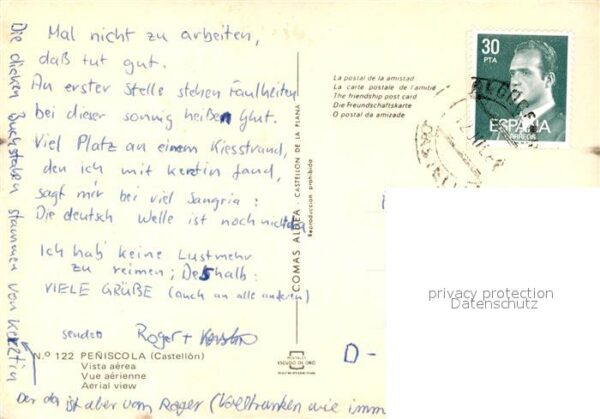 Mal nicht zu arbeiten,
daß tut gut.
An erster Stelle stehen Faulheiten
bei dieser sonnig heißen Glut.
Viel Platz an einem Kiesstrand,
den ich mit Kerstin fand,
sagt mir bei viel Sangria:
Die deutsch Welle ist noch nicht da
Ich hab' keine Lust mehr
zu reimen; Deshalb:
VIELE GRÜßE (auch an alle anderen)
senden Roger + Kerstin
Die dicken Buchstaben stammen von Kerstin
Der da ist aber vom Roger (Voll trinken wie imm
N.º 122 PEÑISCOLA (Castellón)
Vista aérea
Vue aérienne
Aerial view
COMAS ALDEA - CASTELLON DE LA PLANA
Reproduccion prohibida
La postal de la amistad
La carte postale de l'amitié
The friendship post card
Die Freundschaftskarte
O postal da amizade
POSTALES
ESCUDO DE ORO
30
PTA
ESPAÑA
CORREOS
D-
privacy protection
Datenschutz